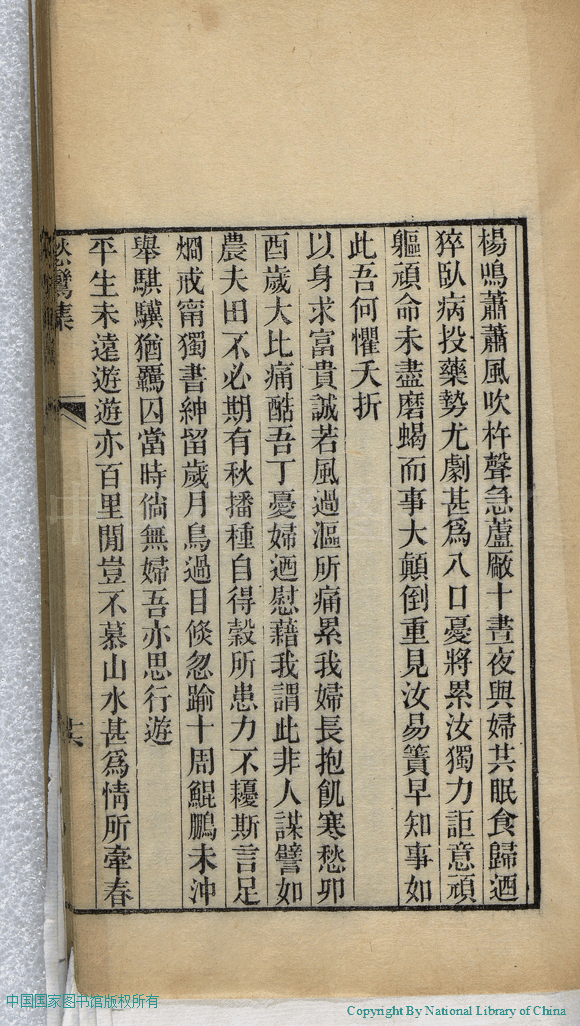 楊鳴蕭蕭風吹杵聲急蘆厰十晝夜與婦共眠食歸迺
猝臥病投藥勢尤劇甚爲八口憂將累汝獨力詎意頑
軀頑命未盡磨蝎而事大顛倒重見汝易簀早知事如
此吾何懼夭折
以身求富貴誠若風過漚所痛累我婦長抱飢寒愁卯
酉歲大比痛酷吾丁憂婦迺慰藉我謂此非人謀譬如
農夫田不必期有秋播種自得穀所患力不耰斯言足
烱戒甯獨書紳留歲月鳥過目倐忽踰十周鯤鵬未沖
舉騏驥猶羈囚當時倘無婦吾亦思行遊
平生未遠遊遊亦百里閒豈不慕山水甚爲情所牽春
愁鸞集
中国国家图书馆版权所有
Copyright By National Library of China